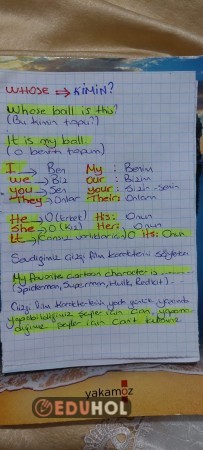 WHOSE ⇒ KİMİN?
Whose ball is this?
(Bu kimin topu?)
It is my ball.
(O benim topum)
I → Ben My : Benim
we → Biz our : Bizim
you → Sen your : Sizin - Senin
They → Onlar Their : Onların
He → O (Erkek) His : Onun
She → O (Kız) Her : Onun
It → (Cansız varlıklarda) O Its : Onun
Sevdiğimiz çizgi film karakterini söylerken
My favorite cartoon character is
(Spiderman, Superman, Hulk, Redkit)
Çizgi film karakterinin
yapabildiğimiz şeyler için can, yapama
dığımız şeyler için can't kullanırız
yakamoz
EDUHOL